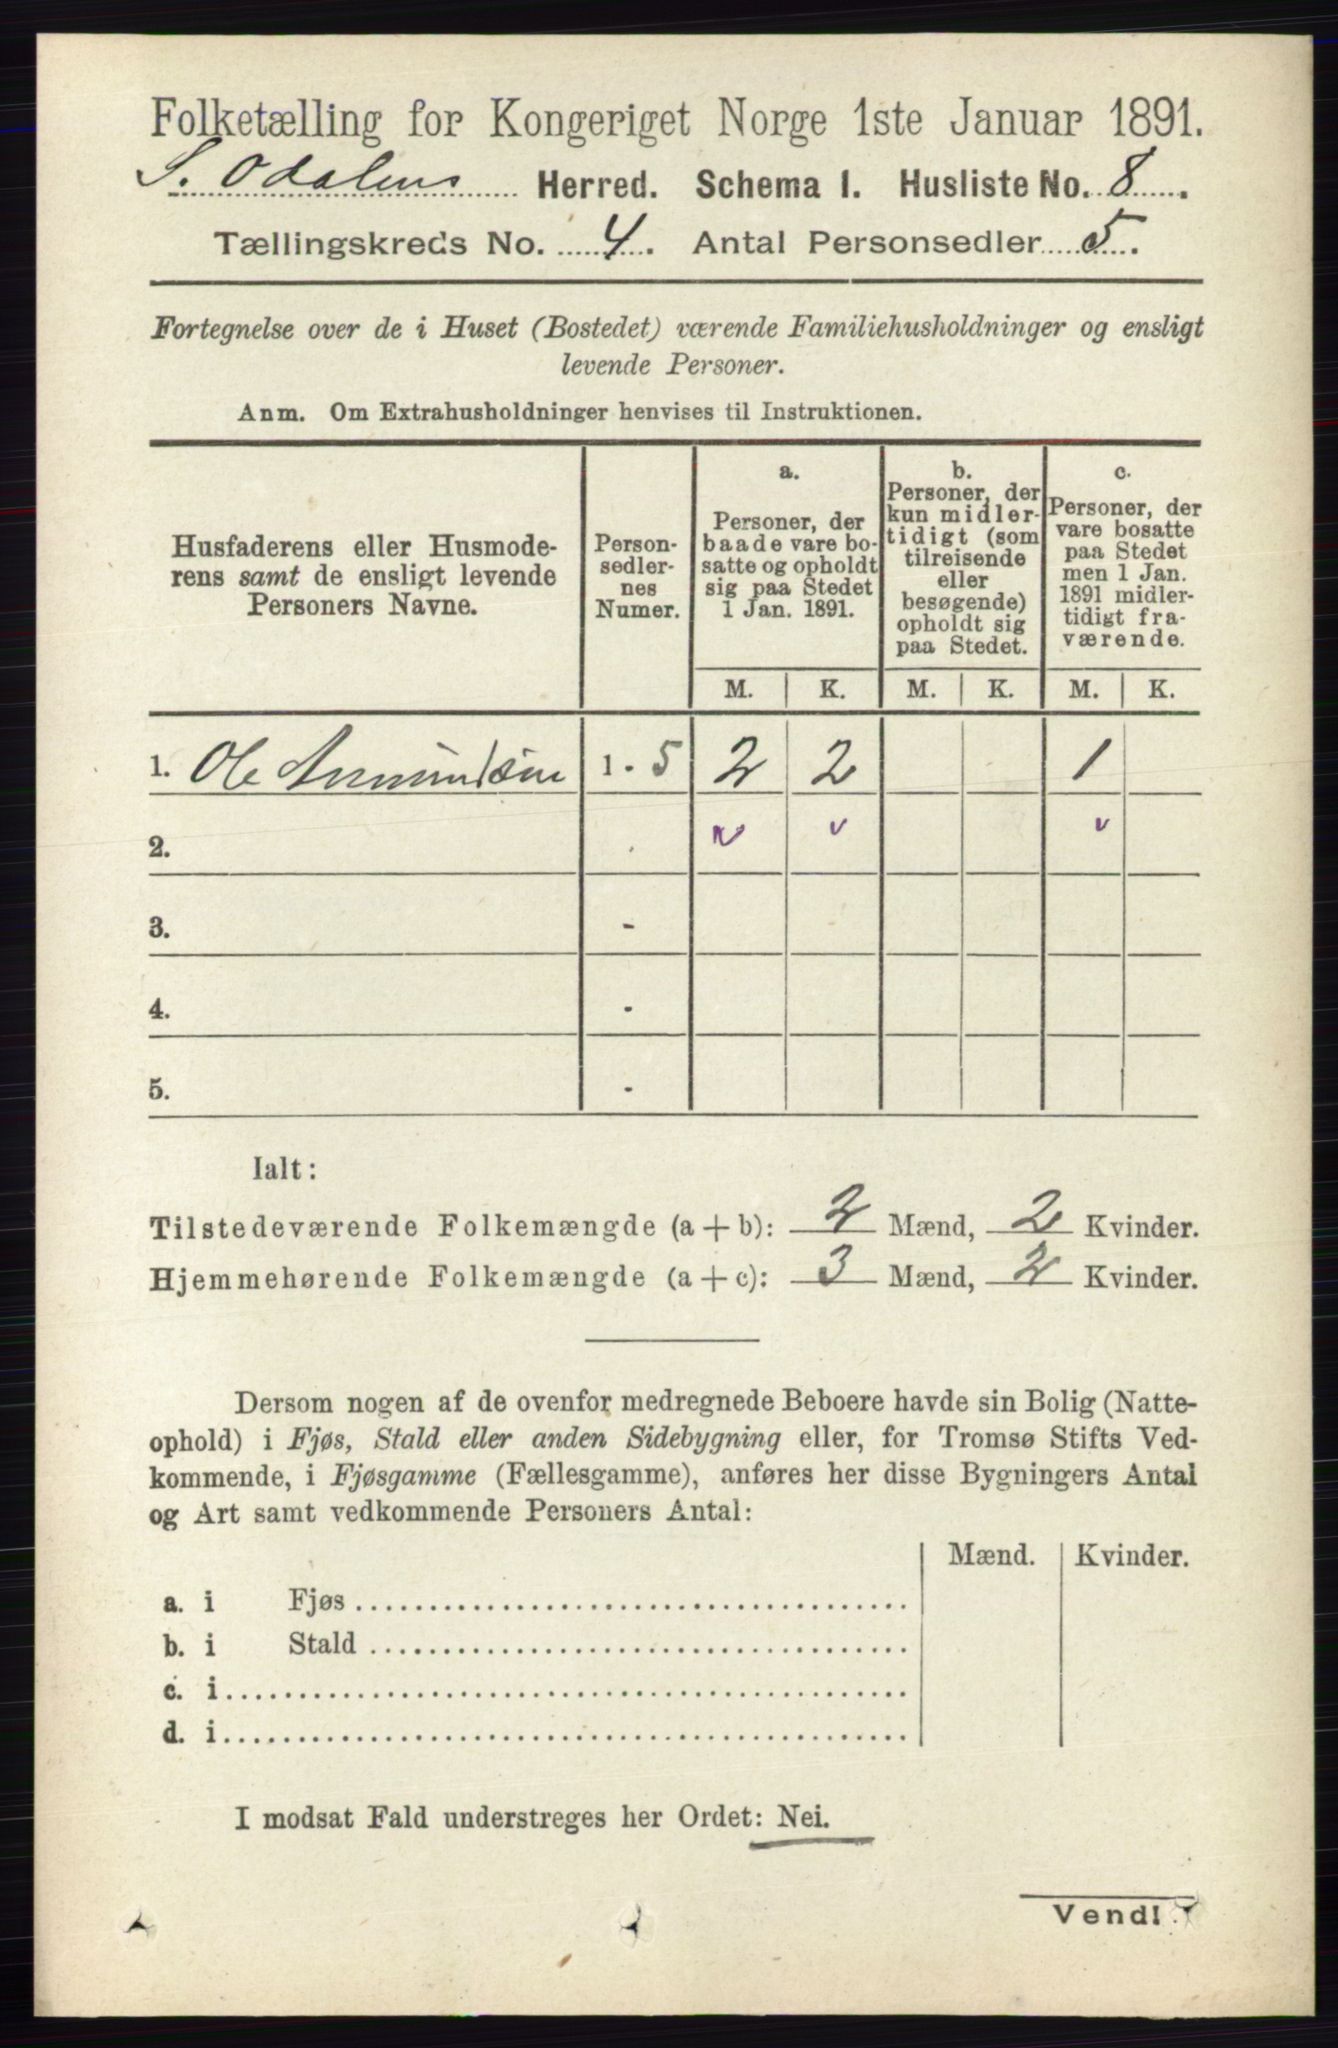 Folketælling for Kongeriget Norge 1ste Januar 1891.
S. Odalens Herred. Schema I. Husliste No. 8.
Tællingskreds No. 4. Antal Personsedler 5.
Fortegnelse over de i Huset (Bostedet) værende Familiehusholdninger og ensligt
levende Personer.
Anm. Om Extrahusholdninger henvises til Instruktionen.
Husfaderens eller Husmode-
rens samt de ensligt levende
Personers Navne.
Person-
sedler-
nes
Numer.
a.
Personer, der
baade vare bo-
satte og opholdt
sig paa Stedet
1 Jan. 1891.
b.
Personer, der
kun midler-
tidigt (som
tilreisende
eller
besøgende)
opholdt sig
paa Stedet.
c.
Personer, der
vare bosatte
paa Stedet
men 1 Jan.
1891 midler-
tidigt fra-
værende.
M. K. M. K. M. K.
1. Ole Amundsen 1 - 5 2 2 1
2. v v v
3. -
4. -
5. -
Ialt:
Tilstedeværende Folkemængde (a + b): 2 Mænd, 2 Kvinder.
Hjemmehørende Folkemængde (a + c): 3 Mænd, 2 Kvinder.
Dersom nogen af de ovenfor medregnede Beboere havde sin Bolig (Natte-
ophold) i Fjøs, Stald eller anden Sidebygning eller, for Tromsø Stifts Ved-
kommende, i Fjøsgamme (Fællesgamme), anføres her disse Bygningers Antal
og Art samt vedkommende Personers Antal:
Mænd. Kvinder.
a. i Fjøs
b. i Stald
c. i
d. i
I modsat Fald understreges her Ordet: Nei.
Vend!